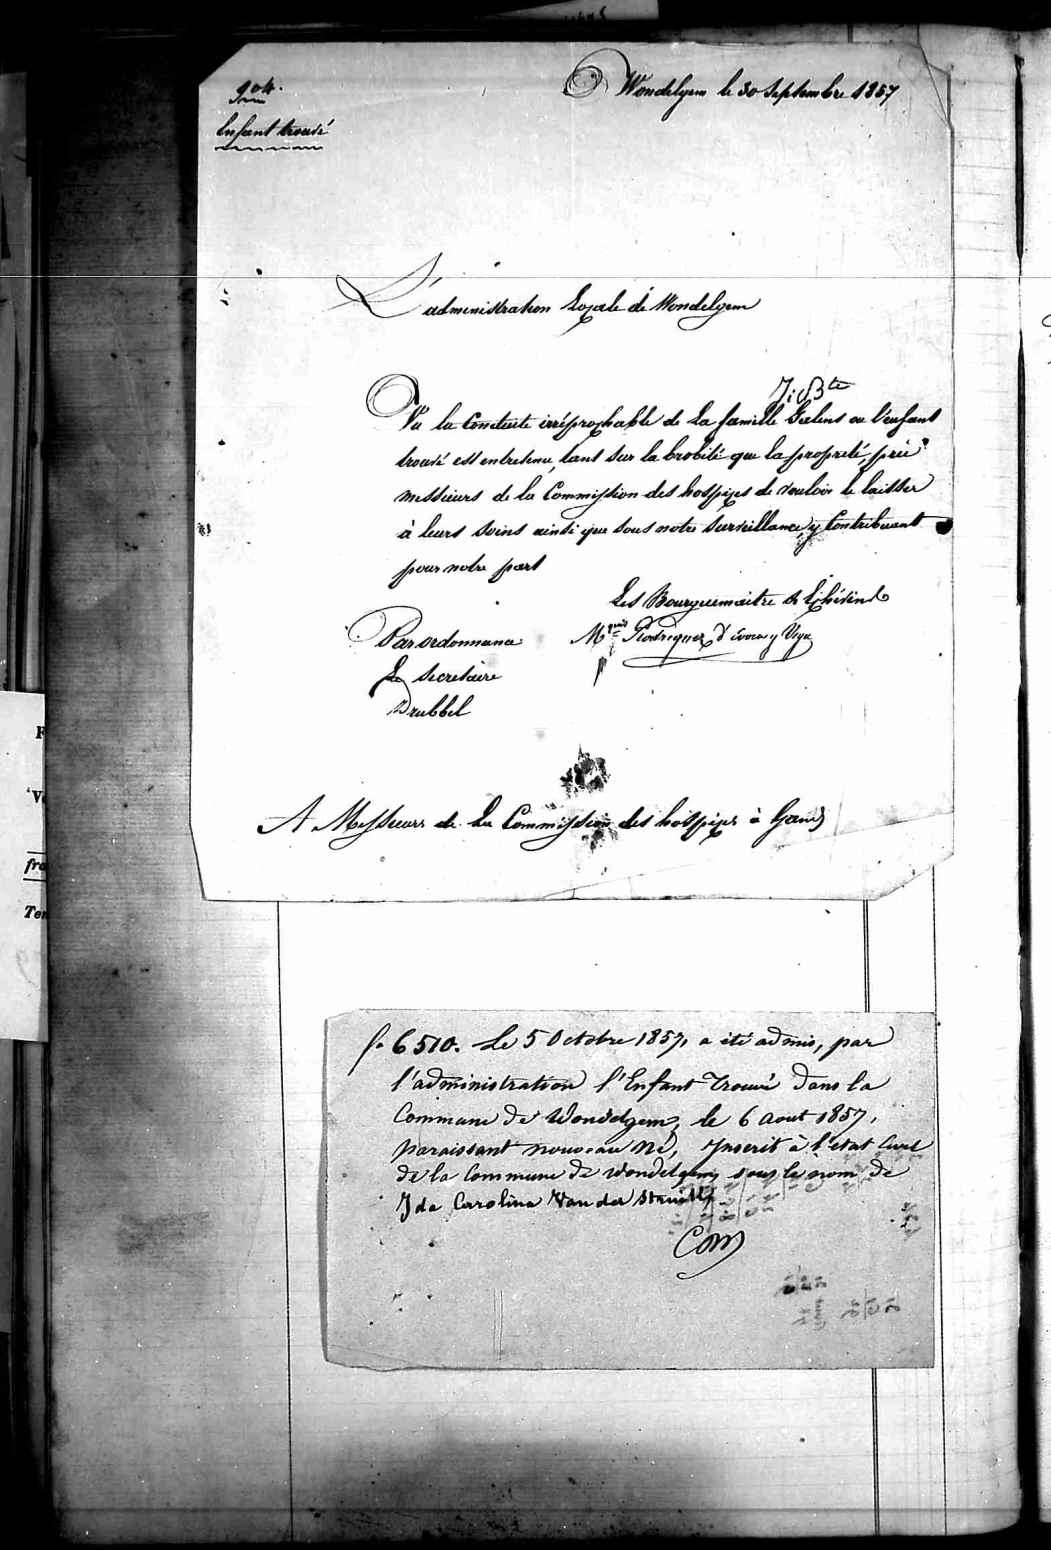 904.
Enfant trouvé
Wondelgem le 30 Septembre 1857
L'administration Locale de Wondelgem
J: Bte
Vu la Conduite irréprochable de la famille Geelens ou l'enfant
trouvé est entretenu, tant sur la brobité que la propreté, prie
messieurs de la Commission des hospices de vouloir le laisser
à leurs soins ainsi que sous notre surveillance, y Contribuant
pour notre part
Les Bourguemaitre & Echévins
Mquis Rodriguez d'évora y Vega
Par ordonnance
Le Secretaire
Drubbel
A Messieurs de La Commission des hospices à Gand
fo 6510. Le 5 Octobre 1857, a été admis, par
l'administration l'Enfant Trouvé dans la
Commune de Wondelgem, le 6 Aout 1857,
paraissant nouveau né, Inscrit à l'état Civil
de la Commune de Wondelgem sous le nom de
Ida Carolina Van der
Com
fra
Ter